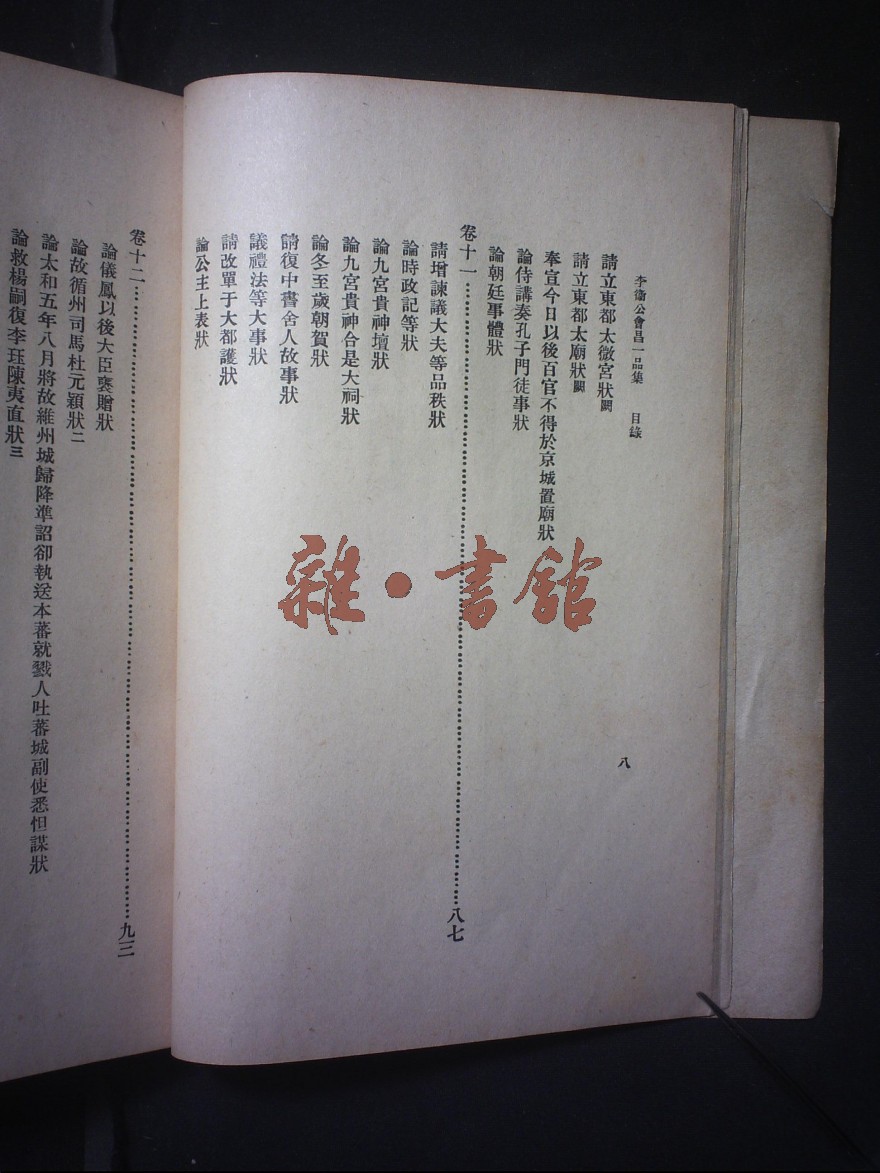 李衞公會昌一品集　目錄
八
請立東都太微宮狀闕
請立東都太廟狀闕
奉宣今日以後百官不得於京城置廟狀
論侍講奏孔子門徒事狀
論朝廷事體狀
卷十一……八七
請增諫議大夫等品秩狀
論時政記等狀
論九宮貴神壇狀
論九宮貴神合是大祠狀
論冬至歲朝賀狀
請復中書舍人故事狀
議禮法等大事狀
請改單于大都護狀
論公主上表狀
卷十二……九三
論儀鳳以後大臣褒贈狀
論故循州司馬杜元穎狀二
論太和五年八月將故維州城歸降準詔卻執送本蕃就戮人吐蕃城副使悉怛謀狀
論救楊嗣復李珏陳夷直狀三
雜·書館